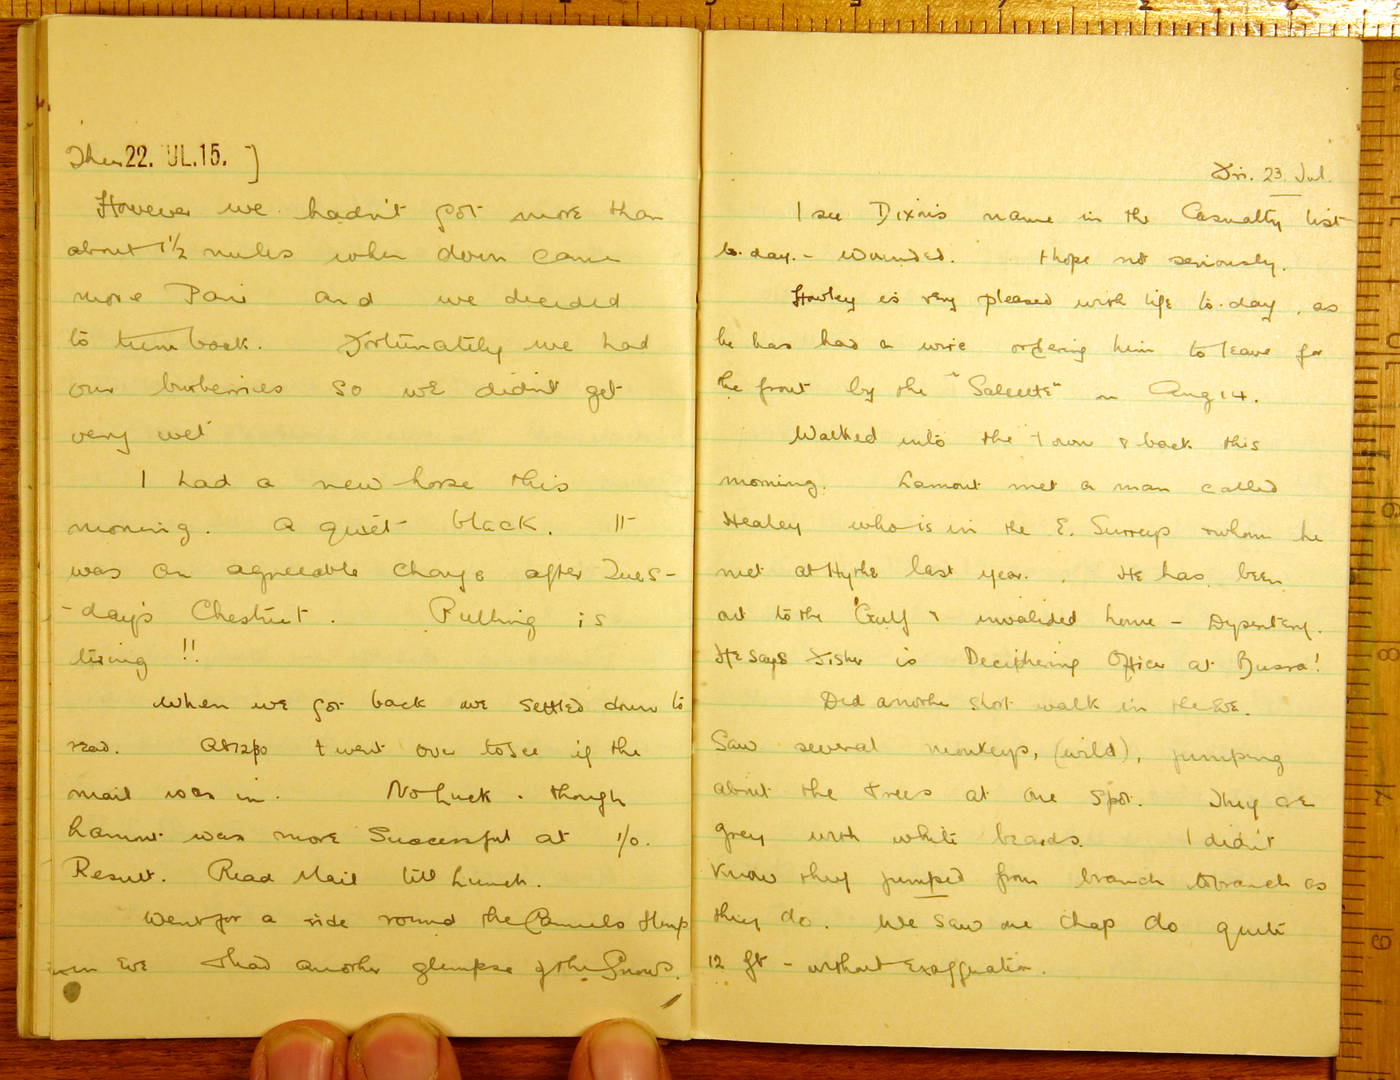 Thur 22. UL.15. ]
However we hadn't got more than
about 1½ miles when down came
more Rain and we decided
to turn back. Fortunately we had
our burberries so we didn't get
very wet
I had a new horse this
morning. A quiet black. It
was an agreeable change after Tues-
-day's Chestnut. Pulling is
tiring !!
When we got back we settled down to
read. At I went over to see if the
mail was in. No Luck. though
Lamont was more Successful at 1/0.
Result. Read Mail till Lunch.
Went for a ride round the Camels Hump
in Eve & had another glimpse of the Snows.
Fri. 23 Jul.
I see Dixon's name in the Casualty list
to-day. - Wounded. I hope not seriously.
is very pleased with life to-day, as
he has had a wire ordering him to leave for
the front by the "Salsette" on Aug 14.
Walked into the Town & back this
morning. Lamont met a man called
Healey who is in the E. Surreys & whom he
met at Hythe last year. He has been
out to the Gulf & invalided home - Dysentery.
He says Fisher is Deciphering Officer at Busra!
Did another short walk in the Eve.
Saw several monkeys, (wild), jumping
about the trees at one spot. They are
grey with white beards. I didn't
know they jumped from branch to branch as
they do. We saw one chap do quite
12 ft - without exaggeration.